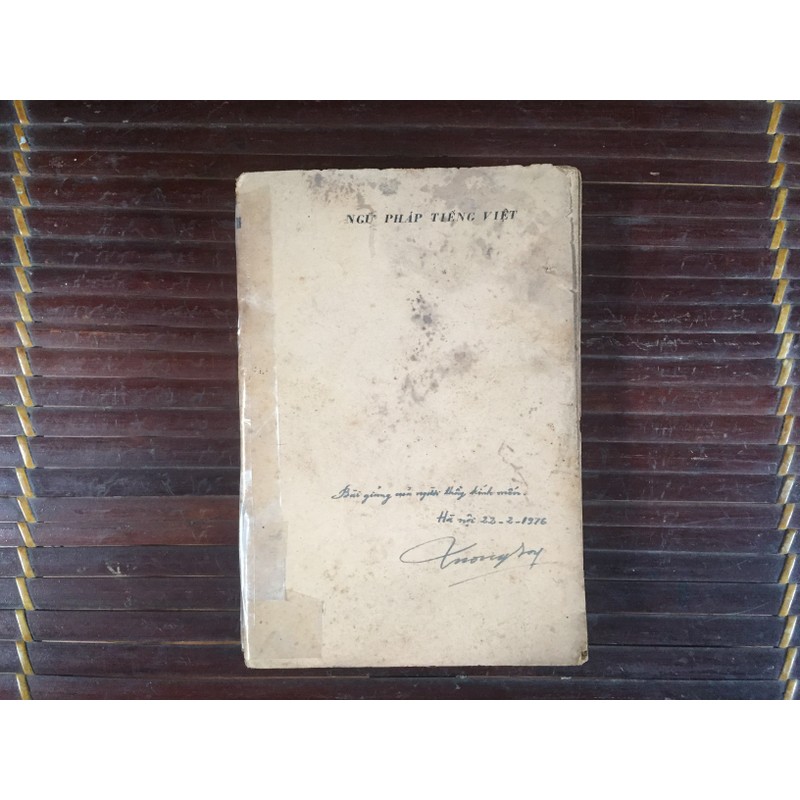 NGỮ PHÁP TIẾNG VIỆT
Bài giảng của người thầy kính mến.
Hà nội 22-2-1976